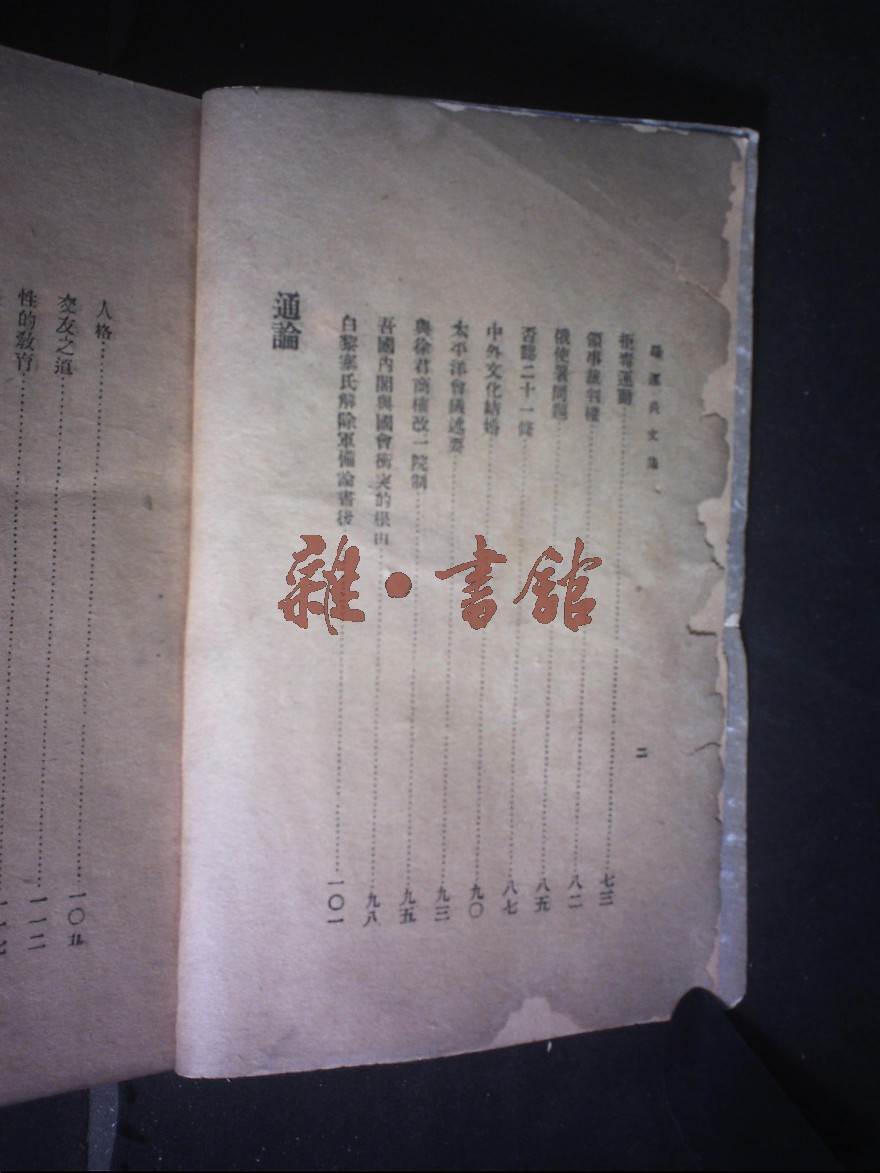 羅運炎文集
二
拒毒運動……七三
領事裁判權……八二
俄使署問題……八五
否認二十一條……八七
中外文化結婚……九〇
太平洋會議述要……九三
與徐君商榷改一院制……九五
吾國內閣與國會衝突的根由……九八
白黎塞氏解除軍備論書後……一〇一
通論
人格……
交友之道……一〇五
性的教育……一一二
一一七
雜·書館